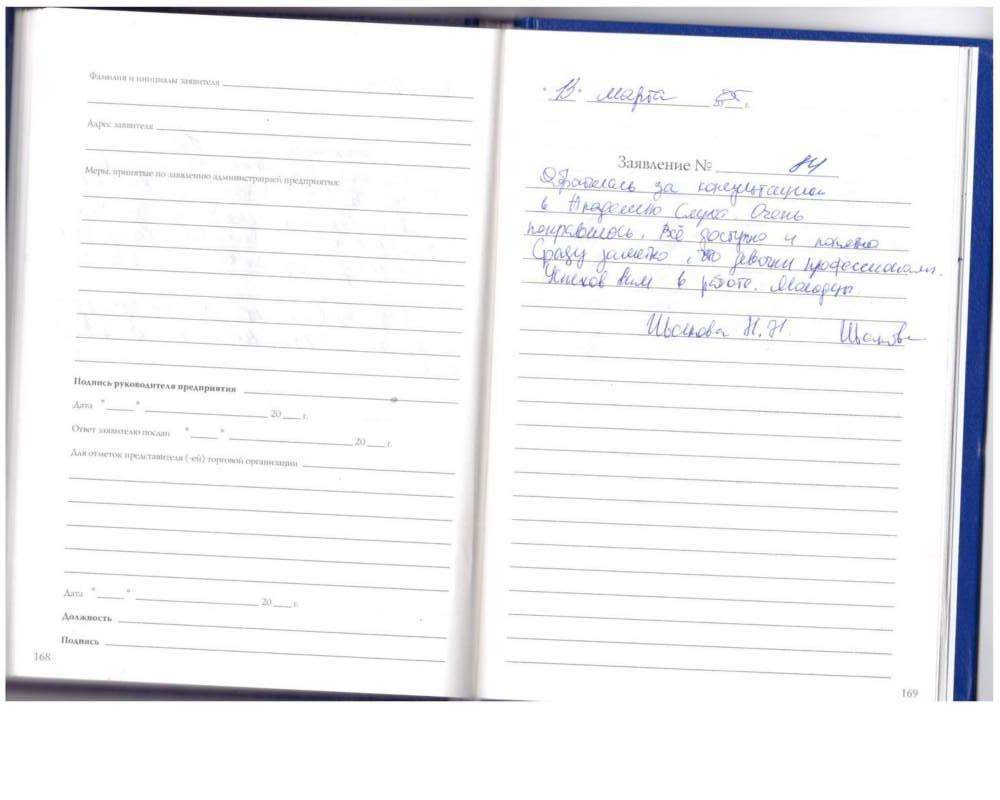 Фамилия и инициалы заявителя
Адрес заявителя
Меры, принятые по заявлению администрацией предприятия:
Подпись руководителя предприятия
Дата " " 20 г.
Ответ заявителю послан " " 20 г.
Для отметок представителя (-ей) торговой организации
Дата " " 20 г.
Должность
Подпись
168
"13" марта г.
Заявление № 84
Обратилась за консультацией
в Академию Слуха. Очень
понравилось. Всё доступно и понятно
Сразу заметно, что девочки профессионалы.
Успехов Вам в работе. Молодцы
Н.Н.
169